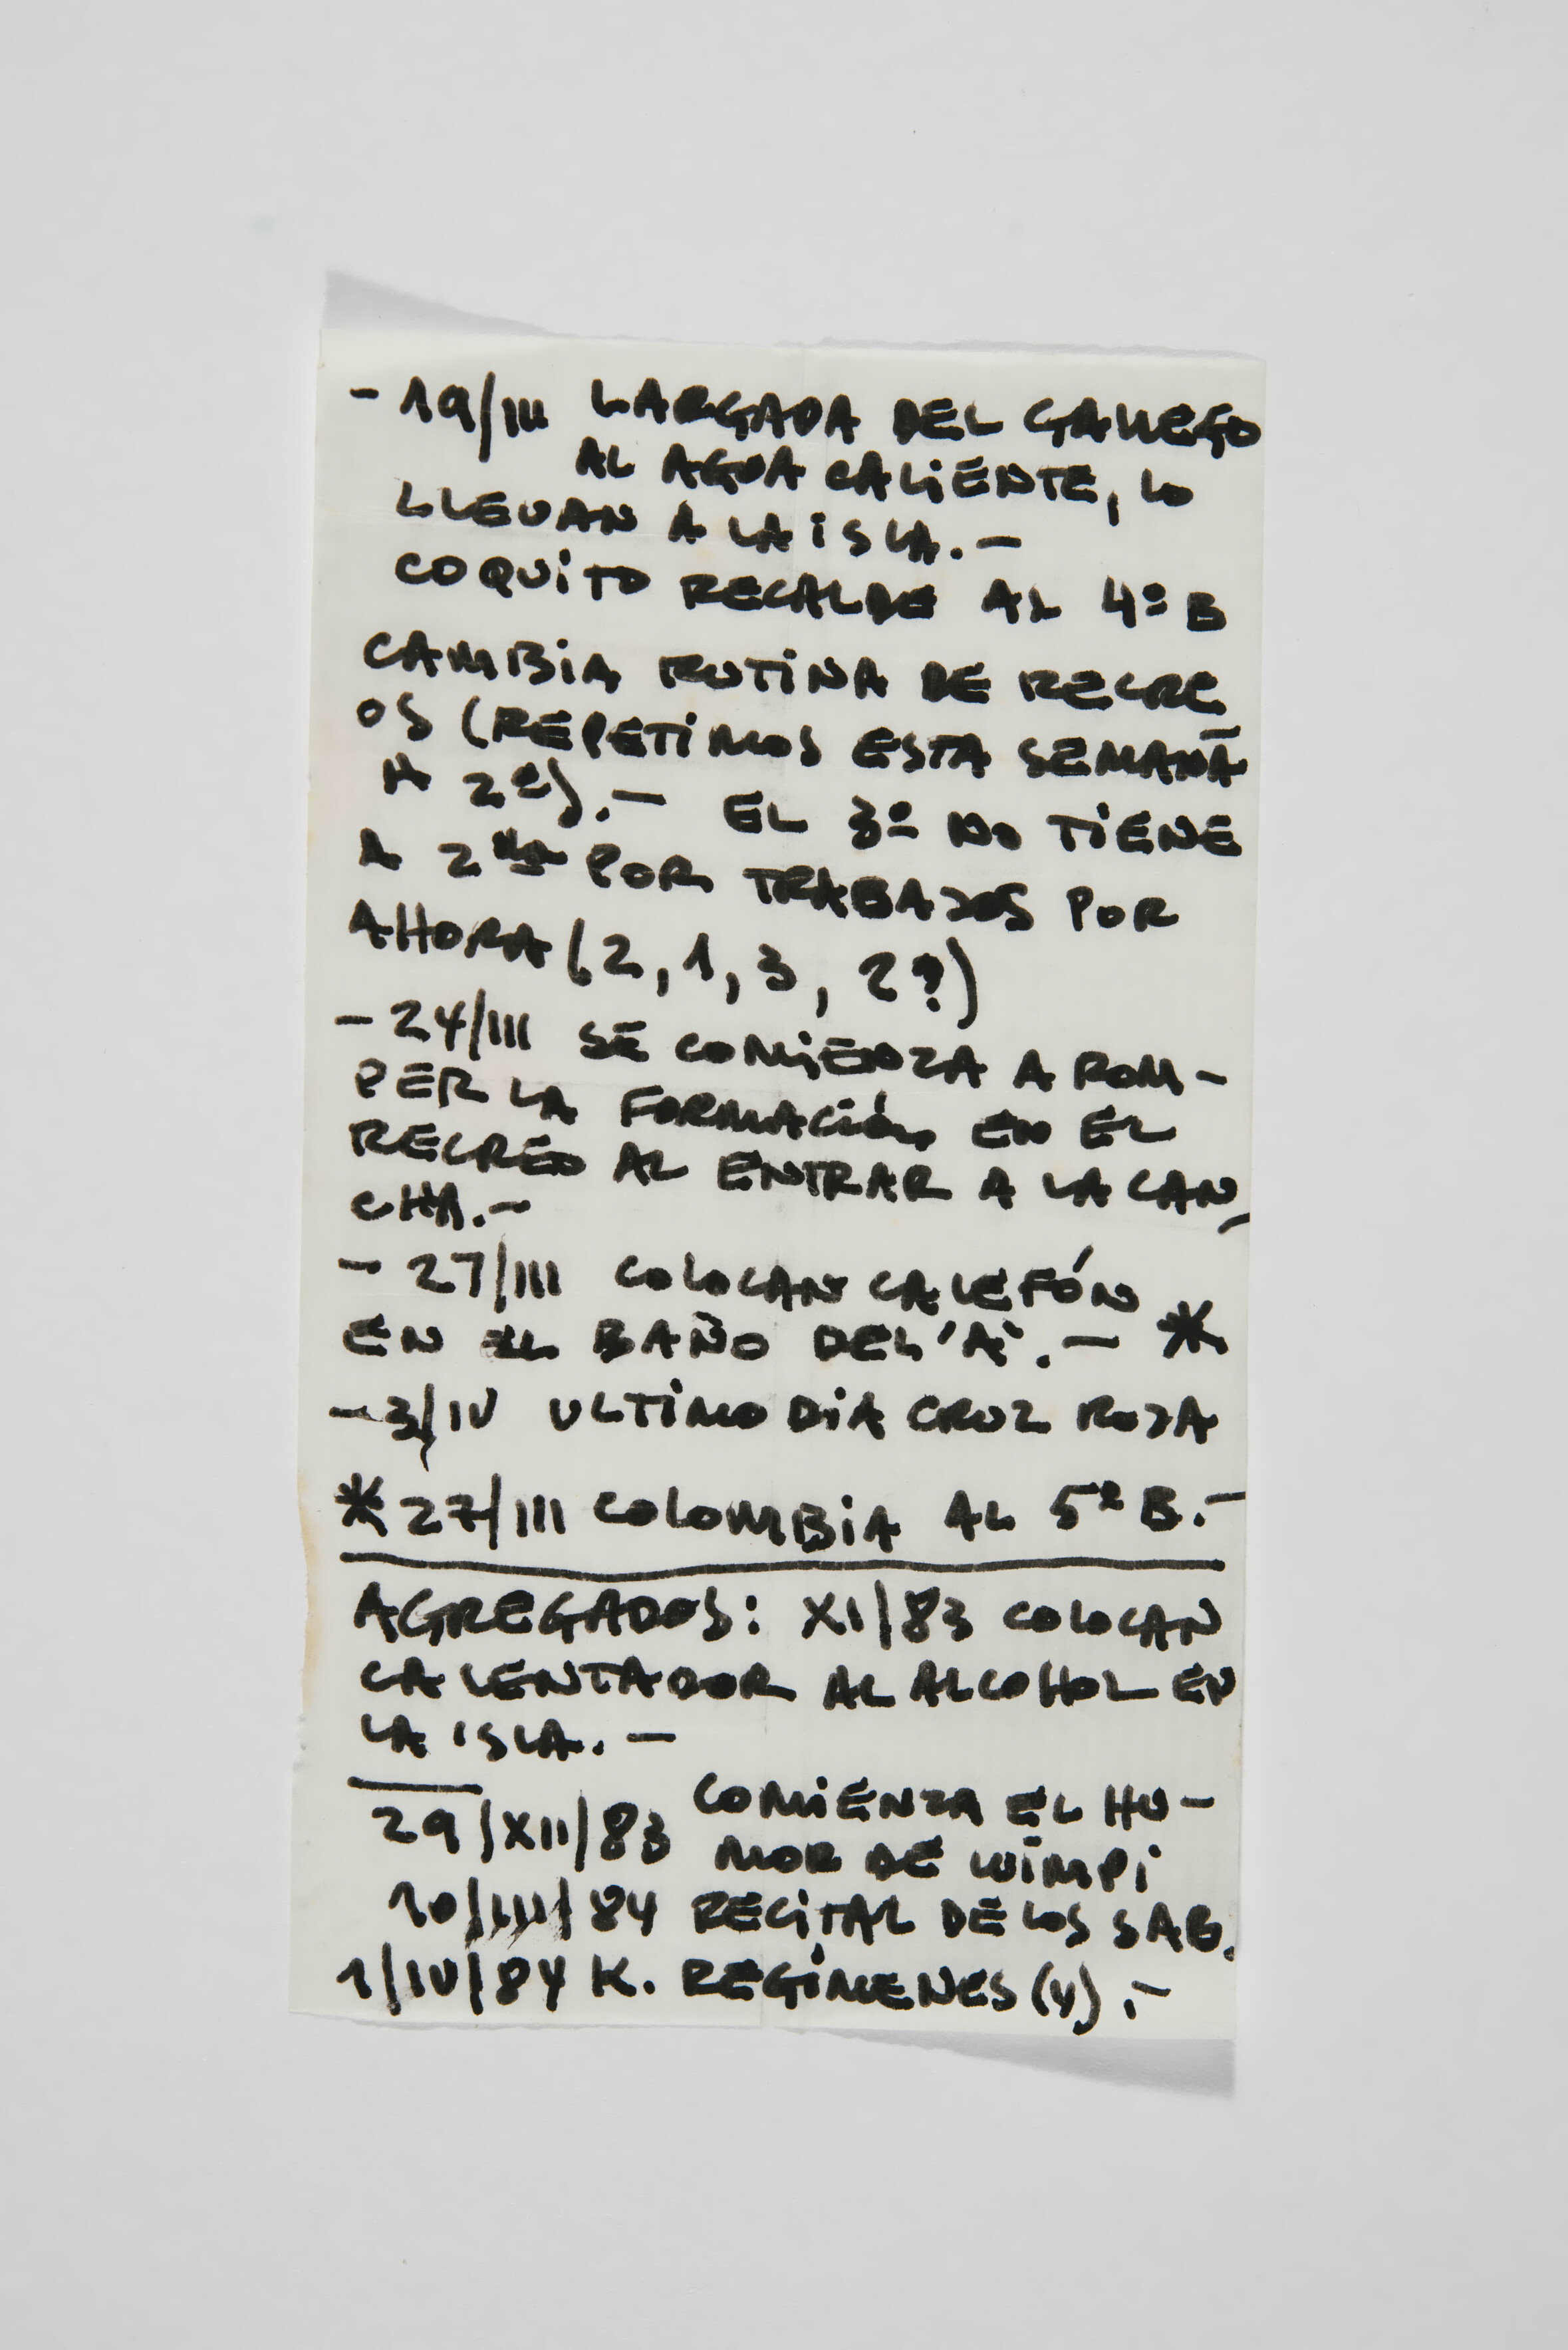 - 19/III LARGADA DEL GALLEGO
AL AGUA CALIENTE, LO
LLEVAN A LA ISLA.-
COQUITO RECALDE AL 4º B
CAMBIA RUTINA DE RECRE
OS (REPETIMOS ESTA SEMANA
A 2ª).- EL 3º NO TIENE
A 2da POR TRABAJOS POR
AHORA (2, 1, 3, 2?)
- 24/III SE COMIENZA A ROM-
PER LA FORMACIÓN EN EL
RECREO AL ENTRAR A LA CAN-
CHA.-
- 27/III COLOCAN CALEFÓN
EN EL BAÑO DEL 'A'.- *
- 3/IV ULTIMO DIA CRUZ ROJA
* 27/III COLOMBIA AL 5º B.-
AGREGADOS: XI/83 COLOCAN
CALENTADOR AL ALCOHOL EN
LA ISLA.-
29/XII/83 COMIENZA EL HU-
MOR DE WIMPI
10/III/84 RECITAL DE LOS SAB.
1/IV/84 K. REGÍMENES (4).-